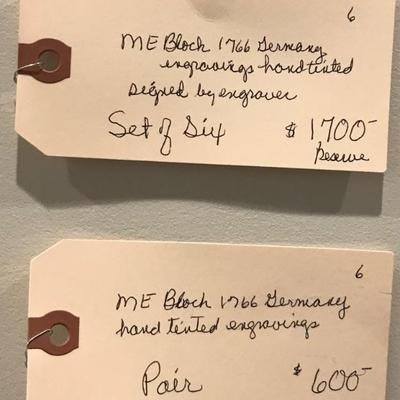 6
ME Bloch 1766 Germany
engravings hand tinted
signed by engraver
Set of Six $1700-
Reserve
6
ME Bloch 1766 Germany
hand tinted engravings
Pair $600-